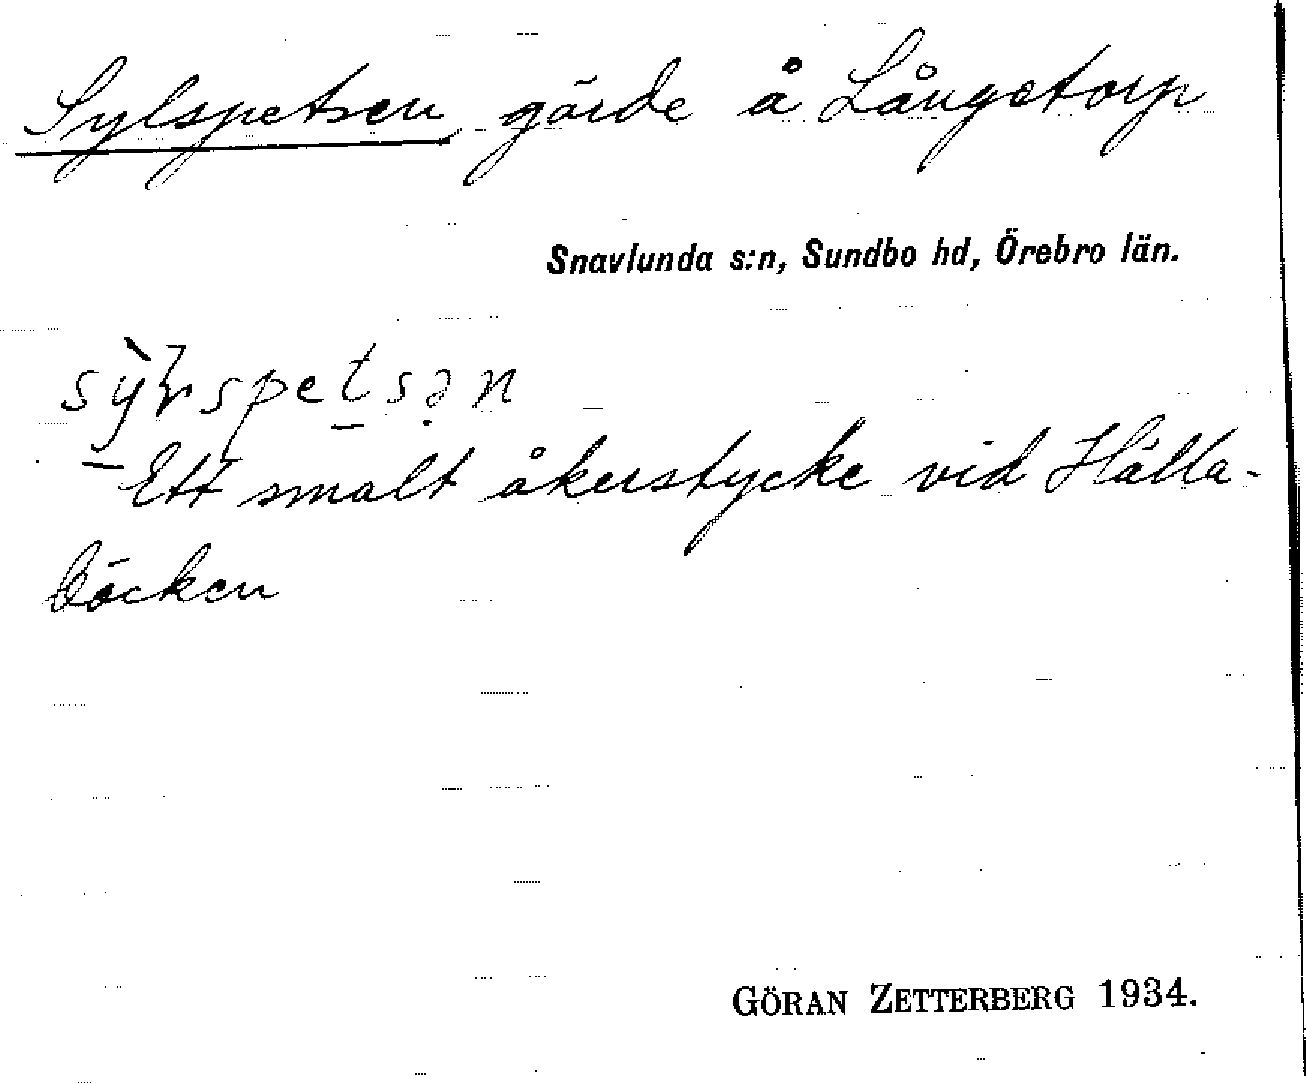 Sylspetsen gärde å Långetorp
Snavlunda s:n, Sundbo hd, Örebro län.
Ett smalt åkerstycke vid Hälla-
bäcken
GÖRAN ZETTERBERG 1934.